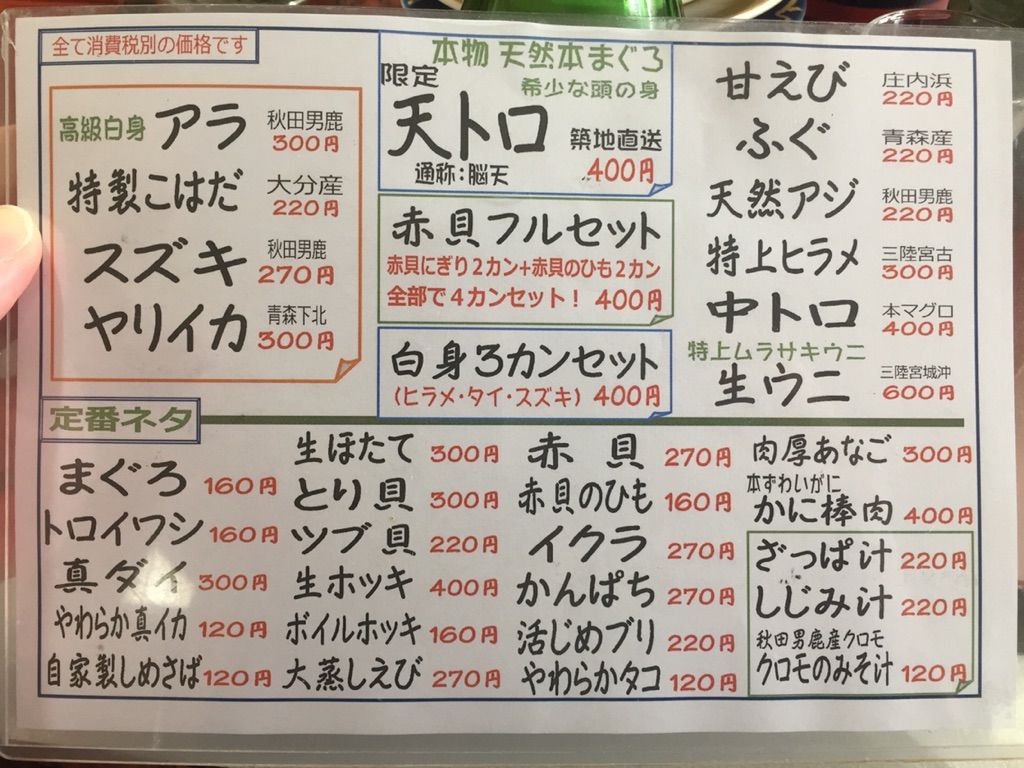 全て消費税別の価格です
高級白身 アラ 秋田男鹿 300円
特製こはだ 大分産 220円
スズキ 秋田男鹿 270円
ヤリイカ 青森下北 300円
本物 天然本まぐろ
限定 希少な頭の身
天トロ 築地直送
通称:脳天 400円
赤貝フルセット
赤貝にぎり2カン+赤貝のひも2カン
全部で4カンセット! 400円
白身3カンセット
(ヒラメ・タイ・スズキ) 400円
甘えび 庄内浜 220円
ふぐ 青森産 220円
天然アジ 秋田男鹿 220円
特上ヒラメ 三陸宮古 300円
中トロ 本マグロ 400円
特上ムラサキウニ
生ウニ 三陸宮城沖 600円
定番ネタ
まぐろ 160円
トロイワシ 160円
真ダイ 300円
やわらか真イカ 120円
自家製しめさば 120円
生ほたて 300円
とり貝 300円
ツブ貝 220円
生ホッキ 400円
ボイルホッキ 160円
大蒸しえび 270円
赤貝 270円
赤貝のひも 160円
イクラ 270円
かんぱち 270円
活じめブリ 220円
やわらかタコ 120円
肉厚あなご 300円
本ずわいがに
かに棒肉 400円
ざっぱ汁 220円
しじみ汁 220円
秋田男鹿産クロモ
クロモのみそ汁 120円